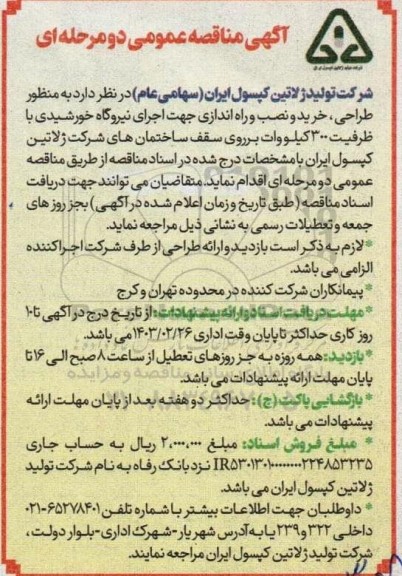 آگهی مناقصه عمومی دو مرحله ای
شرکت تولید ژلاتین کپسول ایران (سهامی عام) در نظر دارد به منظور
طراحی ، خرید و نصب و راه اندازی جهت اجرای نیروگاه خورشیدی با
ظرفیت ۳۰۰ کیلو وات بر روی سقف ساختمان های شرکت ژلاتین
کپسول ایران با مشخصات درج شده در اسناد مناقصه از طریق مناقصه
عمومی دو مرحله ای اقدام نماید. متقاضیان می توانند جهت دریافت
اسناد مناقصه (طبق تاریخ و زمان اعلام شده در آگهی) بجز روز های
جمعه و تعطیلات رسمی به نشانی ذیل مراجعه نماید.
*لازم به ذکر است بازدید و ارائه طراحی از طرف شرکت اجرا کننده
الزامی می باشد.
*پیمانکاران شرکت کننده در محدوده تهران و کرج
*مهلت دریافت اسناد و ارائه پیشنهادات: از تاریخ درج در آگهی تا ۱۰
روز کاری حداکثر تا پایان وقت اداری ۱۴۰۳/۰۲/۲۶ می باشد.
*بازدید: همه روزه به جز روزهای تعطیل از ساعت ۸ صبح الی ۱۶ تا
پایان مهلت ارائه پیشنهادات می باشد.
*بازگشایی پاکت (ج): حداکثر دو هفته بعد از پایان مهلت ارائه
پیشنهادات می باشد.
* مبلغ فروش اسناد: مبلغ ۲،۰۰۰،۰۰۰ ریال به حساب جاری
IR۵۳۰۱۳۰۱۰۰۰۰۰۰۰۰۲۲۴۸۵۳۲۳۵ نزد بانک رفاه به نام شرکت تولید
ژلاتین کپسول ایران می باشد.
* داوطلبان جهت اطلاعات بیشتر با شماره تلفن ۶۵۲۷۸۴۰۱-۰۲۱
داخلی ۳۲۲ و ۲۳۹ یا به آدرس شهریار-شهرک اداری-بلوار دولت ،
شرکت تولید ژلاتین کپسول ایران مراجعه نمایند.